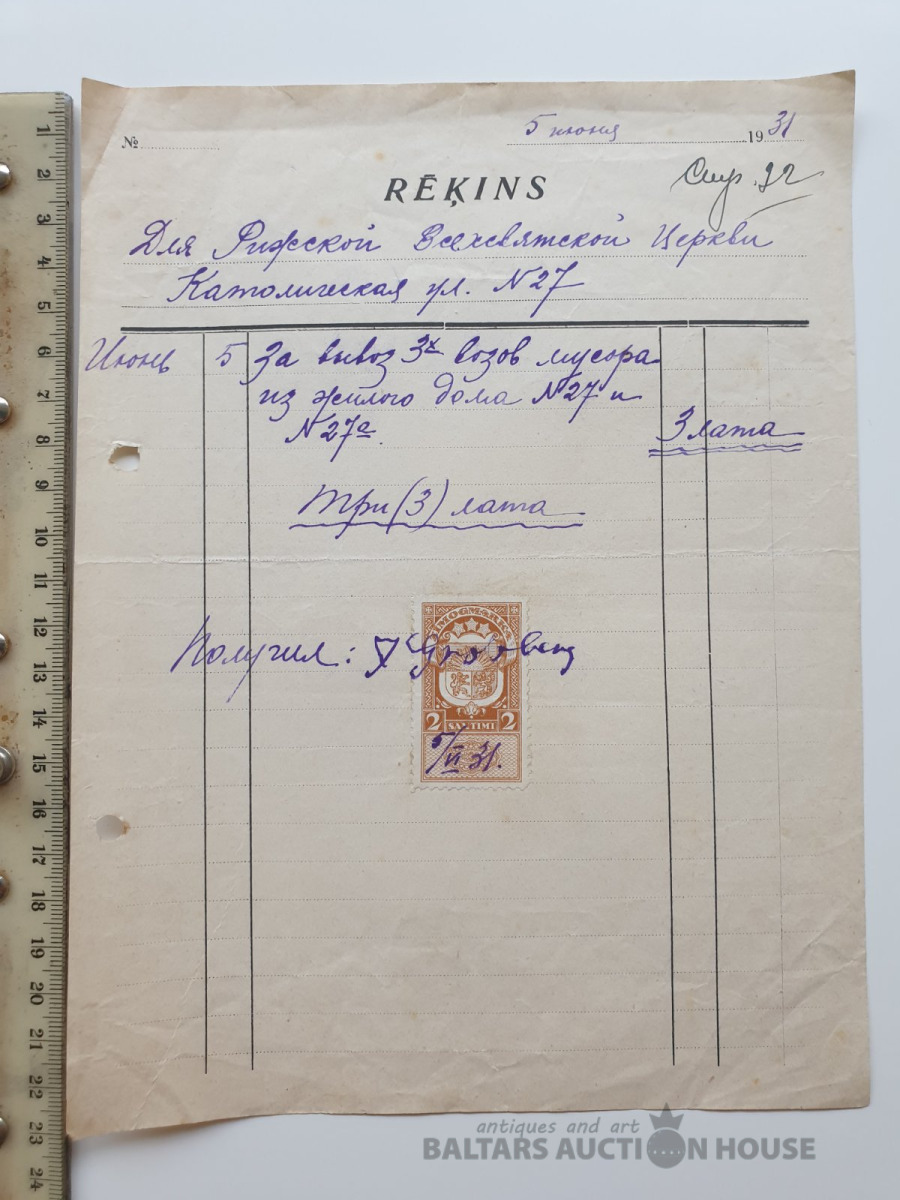 № 5 июня 1931
RĒĶINS
Стр. 92
Для Рижской Всехсвятской Церкви
Католическая ул. N 27
Июнь 5 За вывоз 3х возов мусора
из жилого дома N 27 и
N 27а. 3 лата
Три (3) лата
Получил:
2 SANTIMI 2
5/VI 31.
1
2
3
4
5
6
7
8
9
10
11
12
13
14
15
16
17
18
19
20
21
22
23
24
antiques and art
BALTARS AUCTION HOUSE